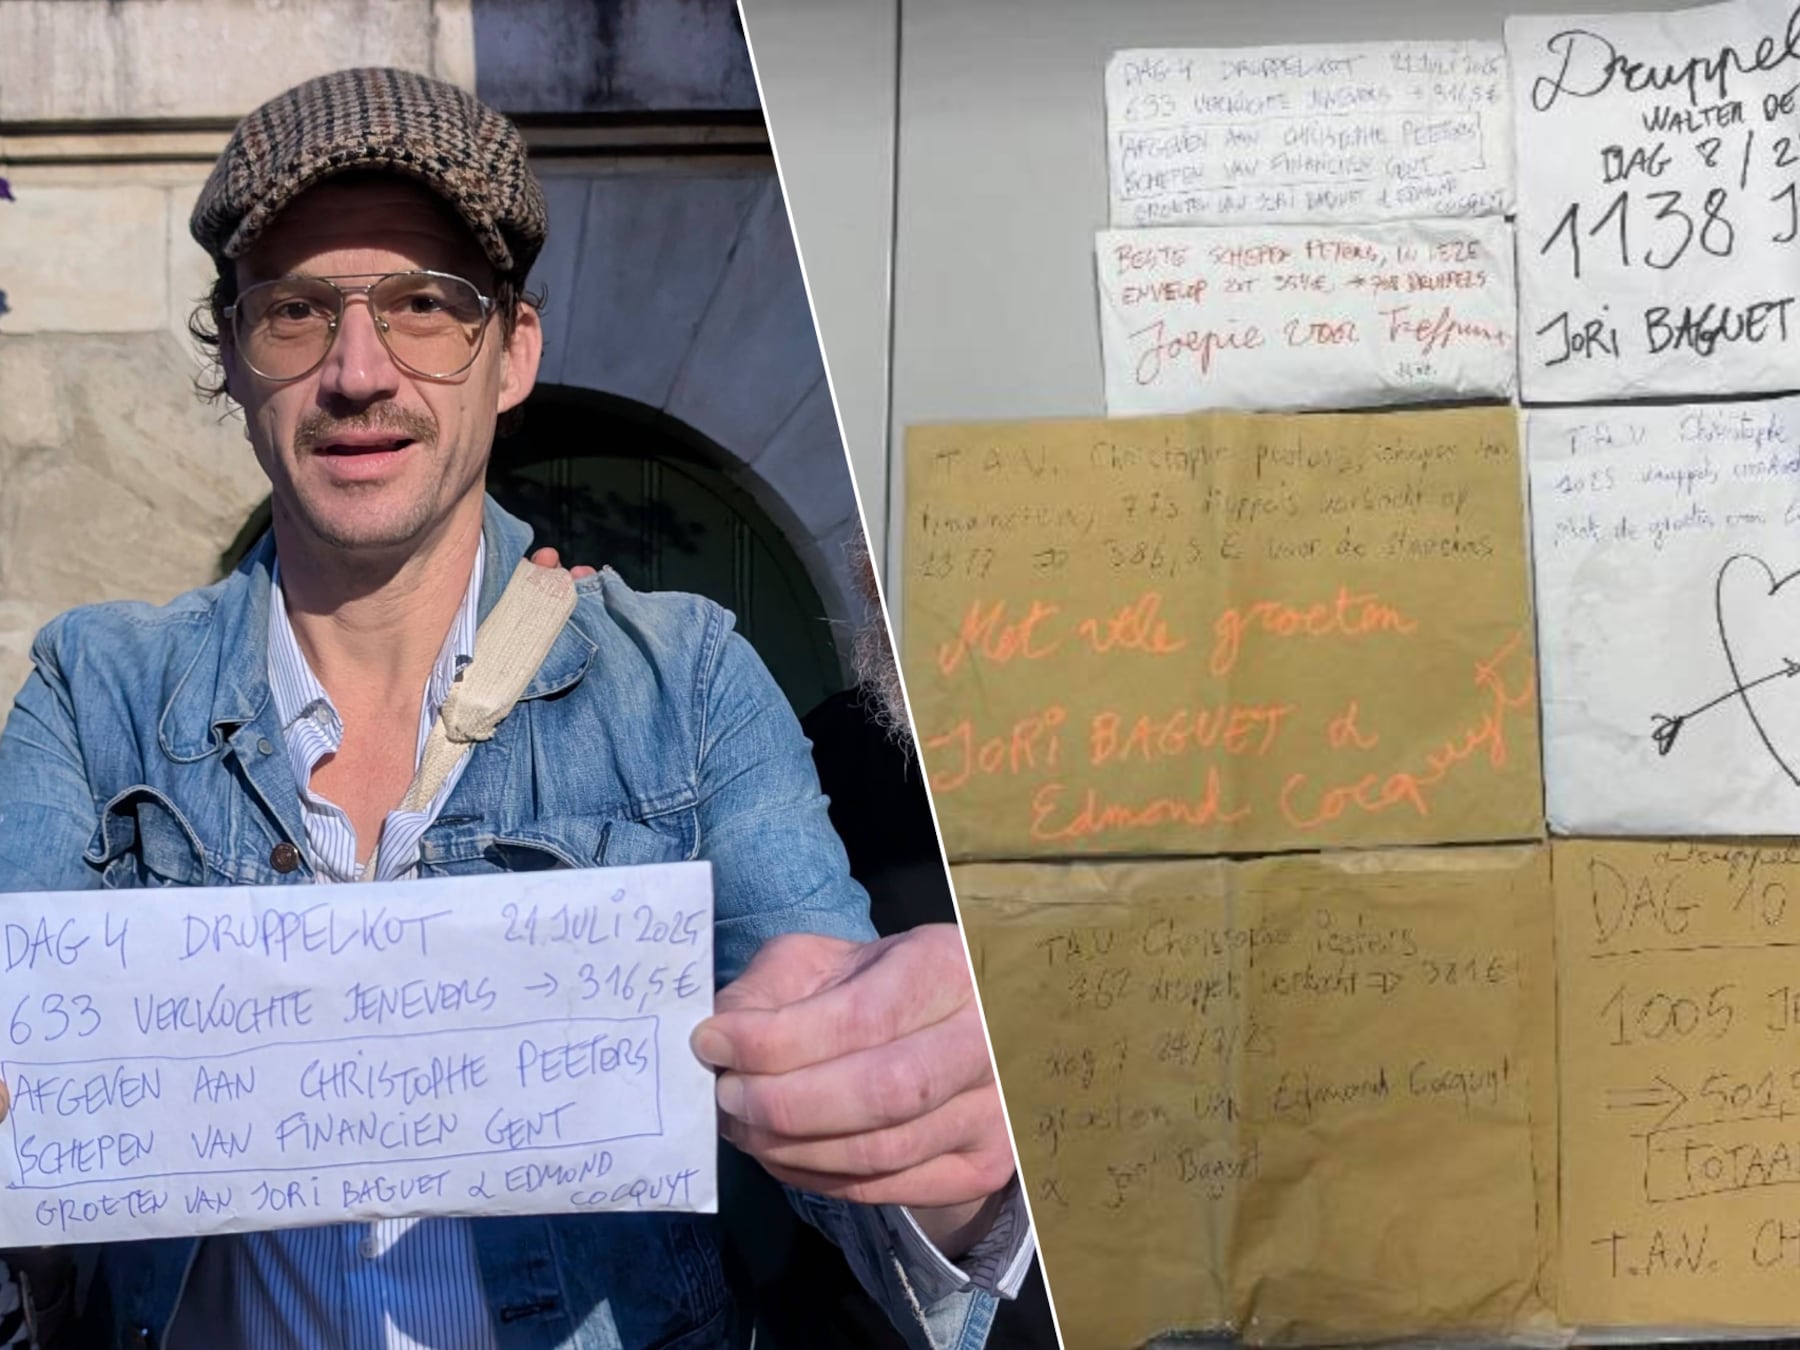 DAG 4 DRUPPELKOT 21 JULI 2025
633 VERKOCHTE JENEVERS → 316,5 €
AFGEVEN AAN CHRISTOPHE PEETERS
SCHEPEN VAN FINANCIEN GENT
GROETEN VAN JORI BAGUET & EDMOND
COCQUYT
DAG 4 DRUPPELKOT 21 JULI 2025
633 VERKOCHTE JENEVERS → 316,5 €
AFGEVEN AAN CHRISTOPHE PEETERS
SCHEPEN VAN FINANCIEN GENT
GROETEN VAN JORI BAGUET & EDMOND
COCQUYT
BESTE SCHEPEN PETERS, IN DEZE
ENVELOP ZIT 354€ → 708 DRUPPELS
Joepie voor
Druppel
WALTER DE
DAG 8 / 2
1138 J
JORI BAGUET
T.A.V. Christophe peeters, schepen van
druppels verkocht op
€ voor de
Met vele groeten
JORI BAGUET &
Edmond Cocquyt
T.A.V Christophe
druppels
de groeten van
T.A.V Christophe Peeters
druppels verkocht ⇒ 381€
dag 7 24/7/25
groeten van Edmond Cocquyt
& Jori Baguet
Druppel
DAG 10
1005 JE
⇒ 501,
TOTAA
T.A.V. CH